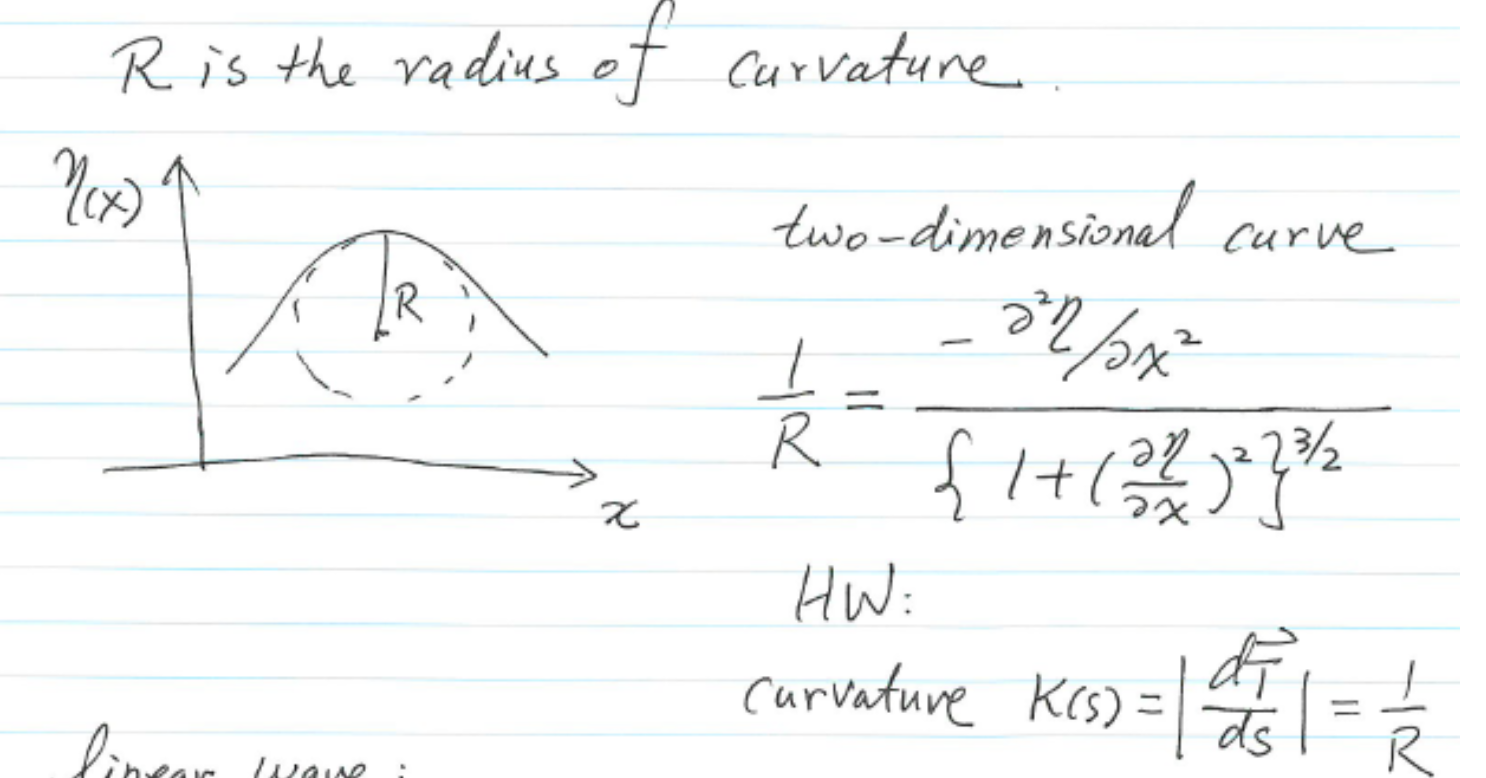 R is the radius of curvature.
η(x)
R
x
two-dimensional curve
1/R = -∂²η/∂x² / {1+(∂η/∂x)²}^3/2
HW:
curvature K(s) = |dT⃗/ds| = 1/R
linear wave: